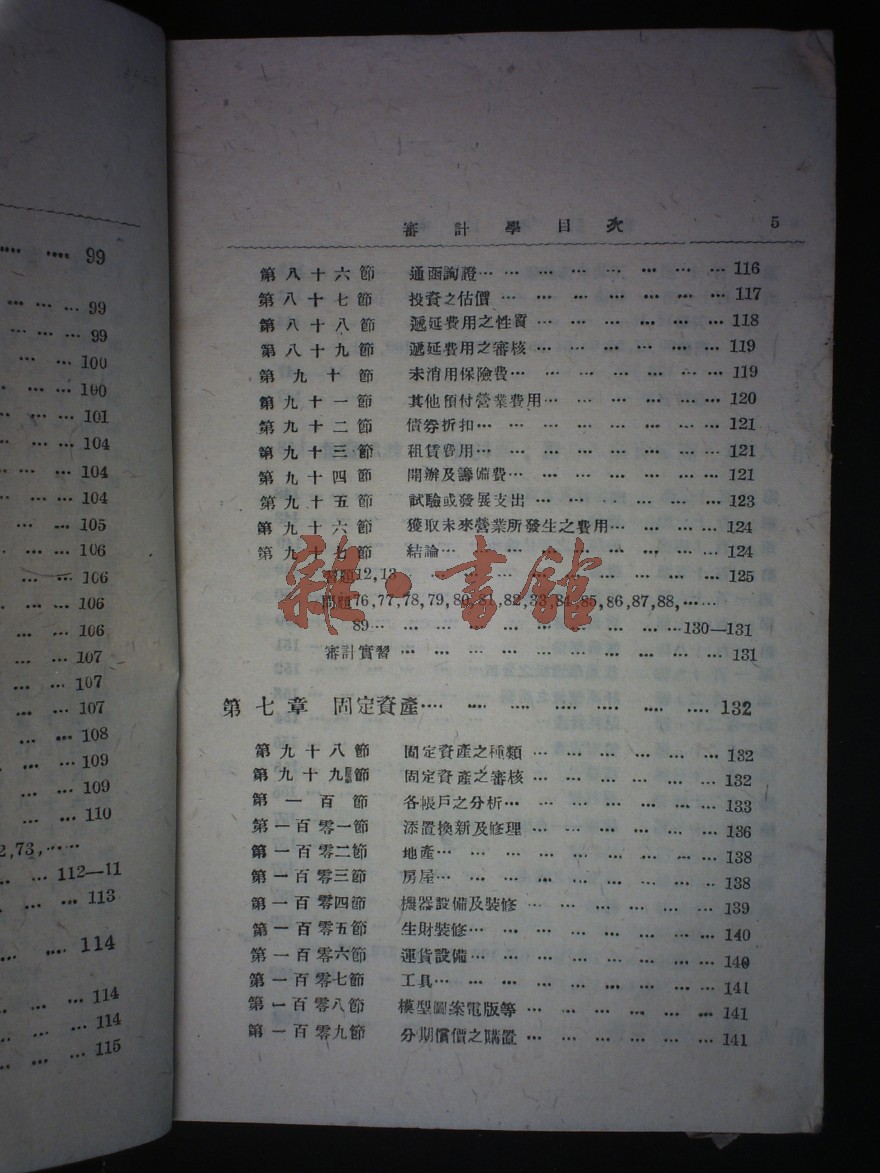 99
99
99
100
100
101
104
104
104
105
106
106
106
106
107
107
107
108
109
109
110
2,73,……
112—11
113
114
114
114
115
審計學目次 5
第八十六節 通函詢證 … … … … … … 116
第八十七節 投資之估價 … … … … … … 117
第八十八節 遞延費用之性質 … … … … … … 118
第八十九節 遞延費用之審核 … … … … … … 119
第九十節 未消用保險費 … … … … … … 119
第九十一節 其他預付營業費用 … … … … … … 120
第九十二節 債券折扣 … … … … … … 121
第九十三節 租賃費用 … … … … … … 121
第九十四節 開辦及籌備費 … … … … … … 121
第九十五節 試驗或發展支出 … … … … … … 123
第九十六節 獲取未來營業所發生之費用 … … … … 124
第九十七節 結論 … … … … … … 124
習題12,13 … … … … … … 125
問題76,77,78,79,80,81,82,83,84,85,86,87,88,……
89 … … … … … … 130—131
審計實習 … … … … … … 131
第七章 固定資產 … … … … … … 132
第九十八節 固定資產之種類 … … … … … … 132
第九十九節 固定資產之審核 … … … … … … 132
第一百節 各帳戶之分析 … … … … … … 133
第一百零一節 添置換新及修理 … … … … … … 136
第一百零二節 地產 … … … … … … 138
第一百零三節 房屋 … … … … … … 138
第一百零四節 機器設備及裝修 … … … … … … 139
第一百零五節 生財裝修 … … … … … … 140
第一百零六節 運貨設備 … … … … … … 140
第一百零七節 工具 … … … … … … 141
第一百零八節 模型圖案電版等 … … … … … … 141
第一百零九節 分期償價之購置 … … … … … … 141
雜·書館